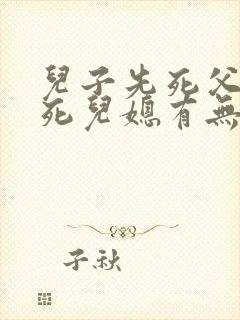 兒子先死父
死兒媳有無
子秋